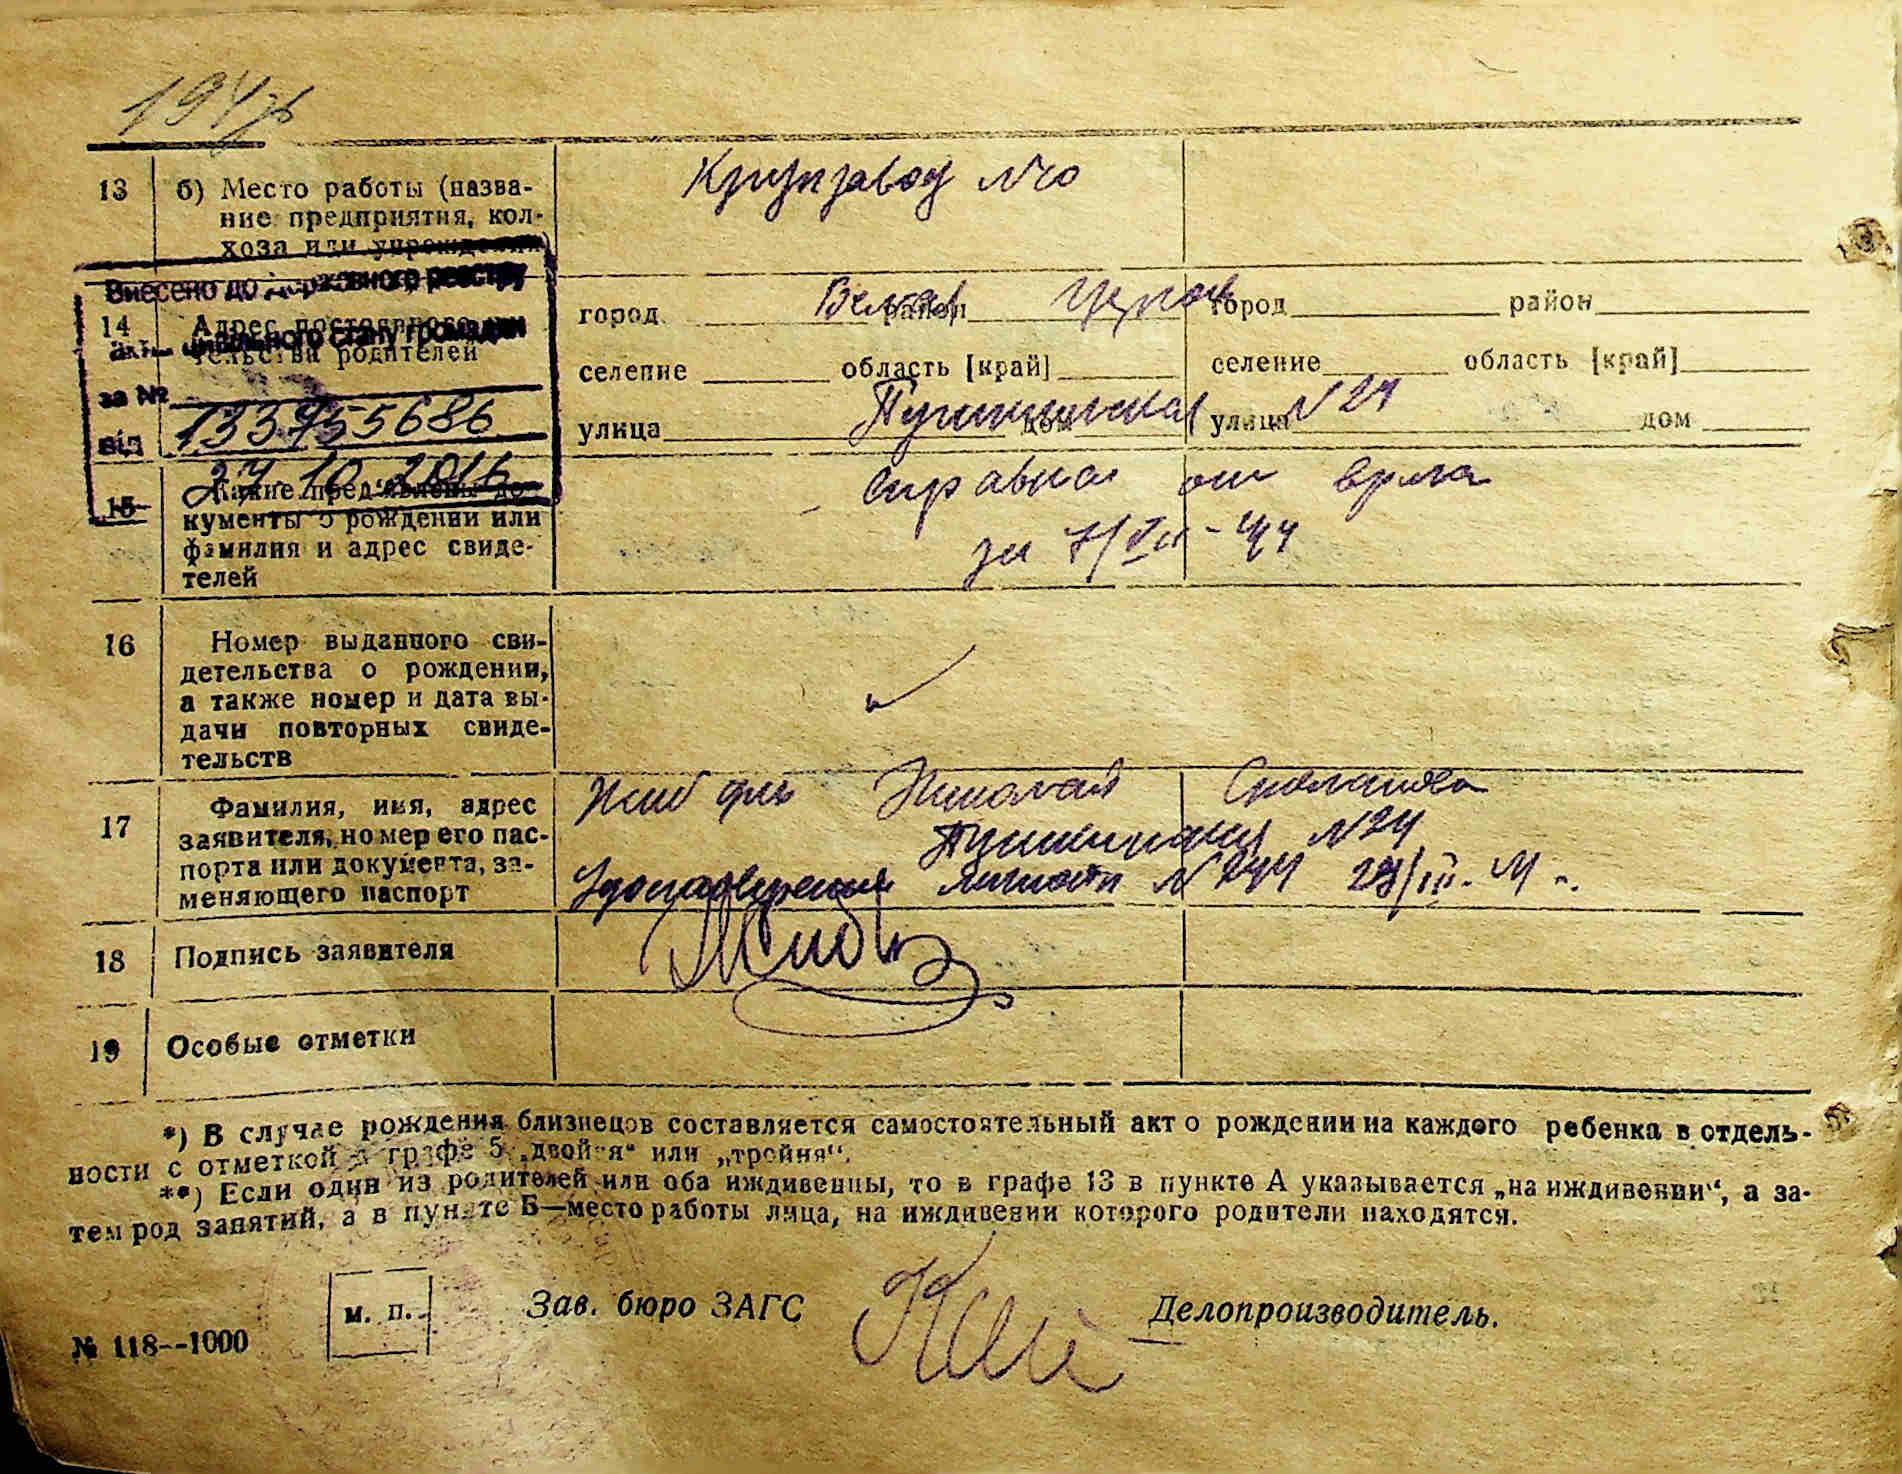 194
13 б) Место работы (назва-
ние предприятия, кол-
хоза или учреждения)
№
Внесено до Державного реєстру
актів цивільного стану громадян
за № 133755686
від 27.10.2016
14 Адрес постоянного жи-
тельства родителей
город Белая район Церковь город район
селение область [край] селение область [край]
улица Пушкинская дом улица N 24 дом
15 Какие пред'явлены до-
кументы о рождении или
фамилия и адрес свиде-
телей
Справка от врача
за 7/VII-44
16 Номер выданного сви-
детельства о рождении,
а также номер и дата вы-
дачи повторных свиде-
тельств
17 Фамилия, имя, адрес
заявителя, номер его пас-
порта или документа, за-
меняющего паспорт
Николай
Пушкинская N 24
Удостоверение личности N 23/III-
18 Подпись заявителя
19 Особые отметки
*) В случае рождения близнецов составляется самостоятельный акт о рождении на каждого ребенка в отдель-
ности с отметкой в графе 5 „двойня“ или „тройня“.
**) Если один из родителей или оба иждивенцы, то в графе 13 в пункте А указывается „на иждивении“, а за-
тем род занятий, а в пункте Б—место работы лица, на иждивении которого родители находятся.
м. п. Зав. бюро ЗАГС Делопроизводитель.
№ 118--1000